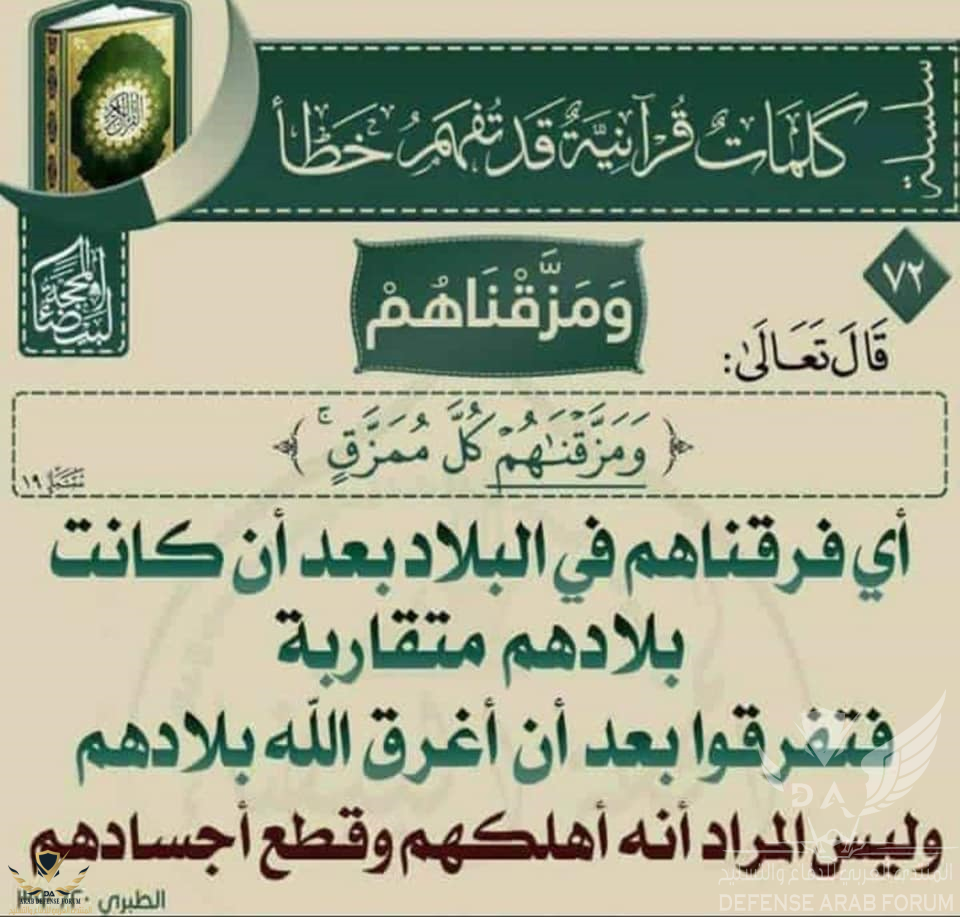 سلسلة
كَلِمَاتٌ قُرْآنِيَّةٌ قَد تُفهَمُ خَطَأً
المحجة
البيضاء
٧٢
وَمَزَّقْنَاهُمْ
قَالَ تَعَالَى:
وَمَزَّقْنَٰهُمْ كُلَّ مُمَزَّقٍ ۚ
سَبَإ ١٩
أي فرقناهم في البلاد بعد أن كانت
بلادهم متقاربة
فتفرقوا بعد أن أغرق الله بلادهم
وليس المراد أنه أهلكهم وقطع أجسادهم
الطبري
DA
المنتدى العربي للدفاع والتسليح
DEFENSE ARAB FORUM
DA
ARAB DEFENSE FORUM